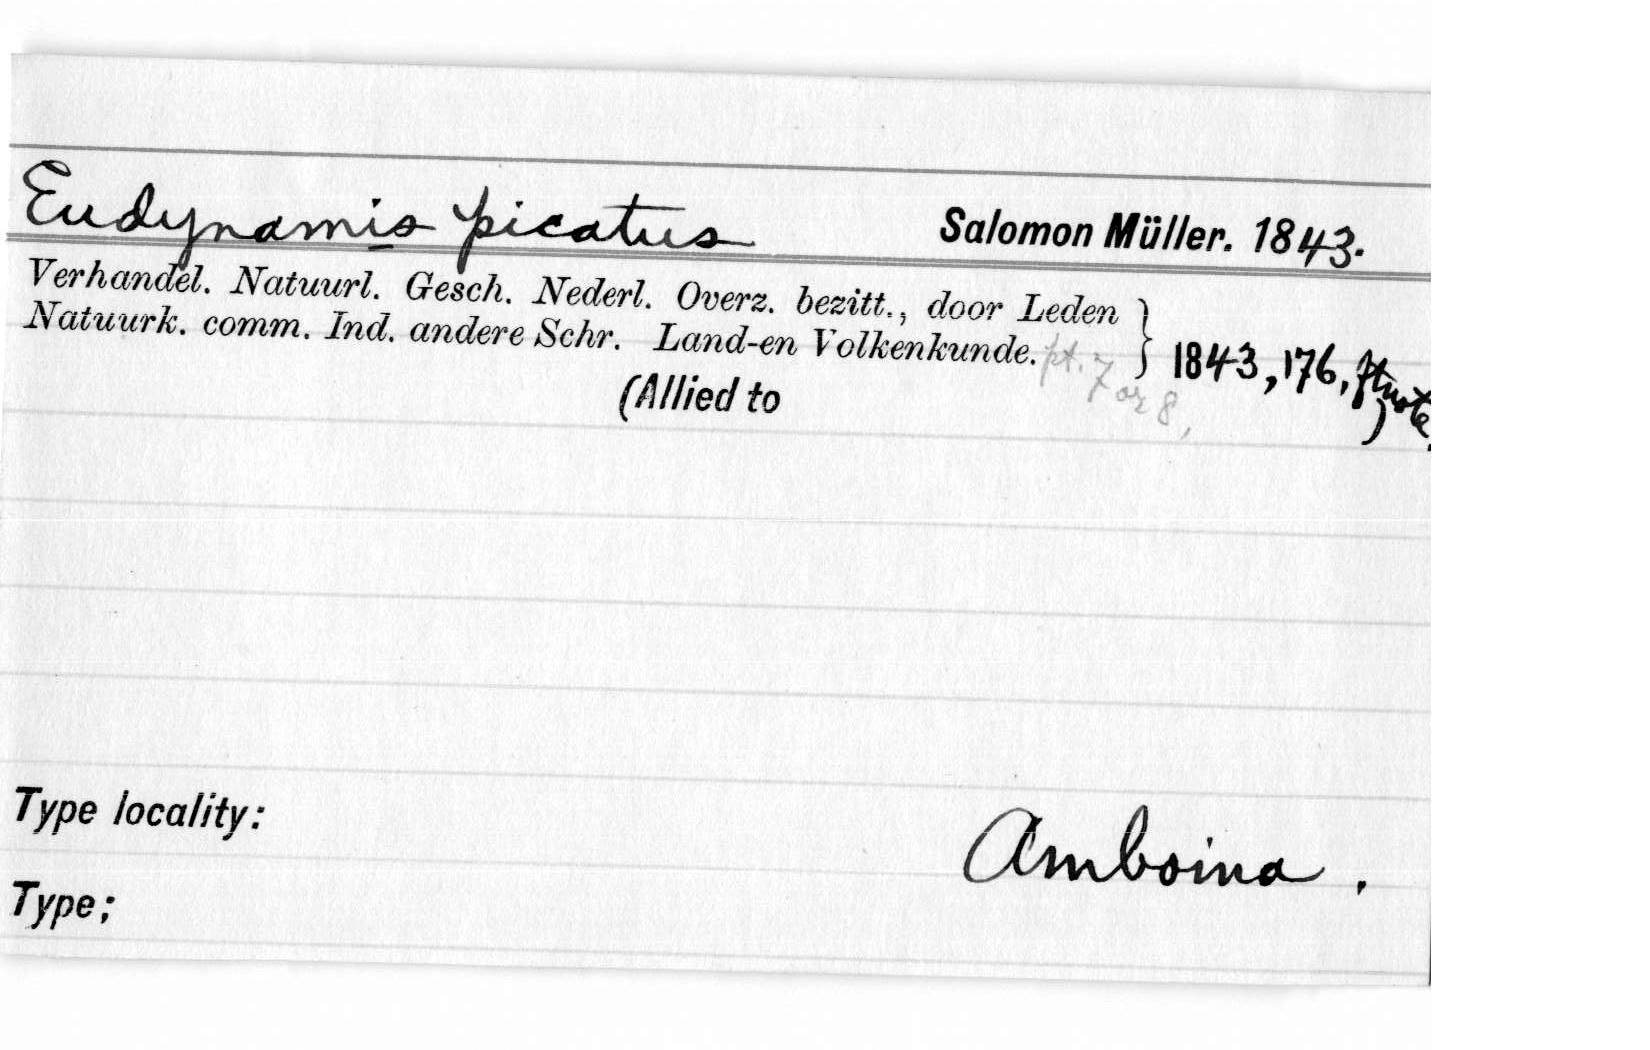 Eudynamis picatus Salomon Müller. 1843.
Verhandel. Natuurl. Gesch. Nederl. Overz. bezitt., door Leden }
Natuurk. comm. Ind. andere Schr. Land-en Volkenkunde. pt. 7 or 8, 1843, 176, ftnote.
(Allied to )
Type locality: Amboina.
Type;